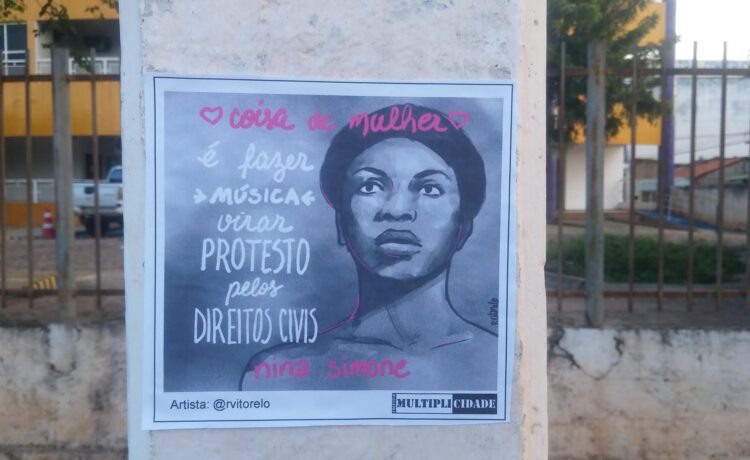 ♡ coisa de mulher ♡
é fazer
MÚSICA
virar
PROTESTO
pelos
DIREITOS CIVIS
nina simone
Artista: @rvitorelo
MULTIPLICIDADE